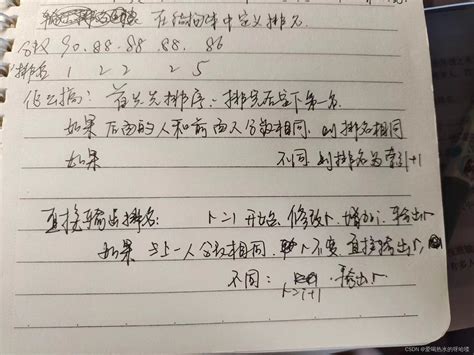 在结构体中定义排名.
分数 90. 88. 88. 88. 86
排名 1 2 2 2 5
首先先排序,排完后
如果 后面的人和前面人分数相同,则排名相同
如果 不同则排名为索引+1
直接输出排名: r=1开始 修改r. 输出r
如果 与上一人分数相同, r不变.直接输出r,
不同: r=i+1 输出r
CSDN @爱喝热水的呀哈喽